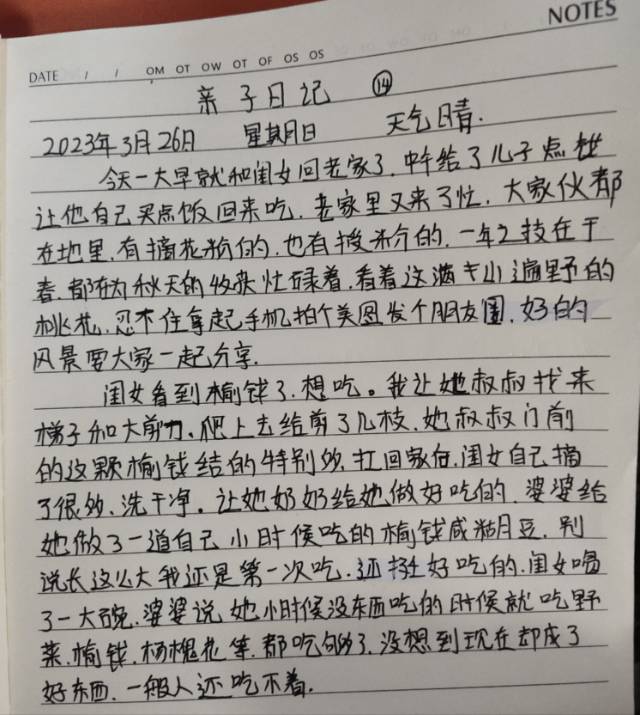 NOTES
DATE / / OM OT OW OT OF OS OS
亲子日记 ⑭
2023年3月26日 星期日 天气晴.
今天一大早就和闺女回老家了.中午给了儿子点钱
让他自己买点饭回来吃.老家里又来了忙.大家伙都
在地里.有摘花粉的.也有授粉的.一年之技在于
春.都在为秋天的收获忙碌着.看着这满卡山遍野的
桃花.忍不住拿起手机拍个美图发个朋友圈.好的
风景要大家一起分享.
闺女看到榆钱了.想吃。我让她叔叔找来
梯子和大剪刀、爬上去给剪了几枝.她叔叔门前
的这颗榆钱结的特别多.扛回家后.闺女自己摘
了很多、洗干净。让她奶奶给她做好吃的.婆婆给
她做了一道自己小时候吃的榆钱咸糊豆.别
说长这么大我还是第一次吃.还挺好吃的.闺女喝
了一大碗.婆婆说她小时候没东西吃的时候就吃野
菜.榆钱.杨槐花等.都吃够了.没想到现在却成了
好东西.一般人还吃不着.